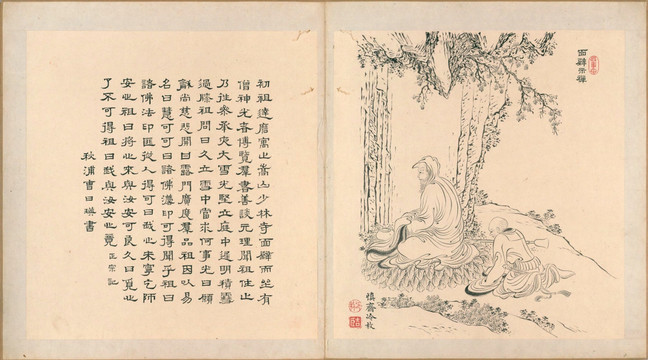 面壁示禪
慎齋冷枚
初祖達磨寓止嵩山少林寺面壁而坐有
僧神光者博覽羣書善談元理聞祖住止
乃往參承夜大雪光堅立庭中遲明積雪
過膝祖問曰久立雪中當求何事光曰願
龢尚慈悲開甘露門廣度羣品祖因以易
名曰慧可可曰諸佛灋印可得聞乎祖曰
諸佛法印匪從人得可曰我心未寧乞師
安心祖曰將心來與汝安可良久曰覓心
了不可得祖曰我與汝安心竟 正宗記
秋浦曹日瑛書